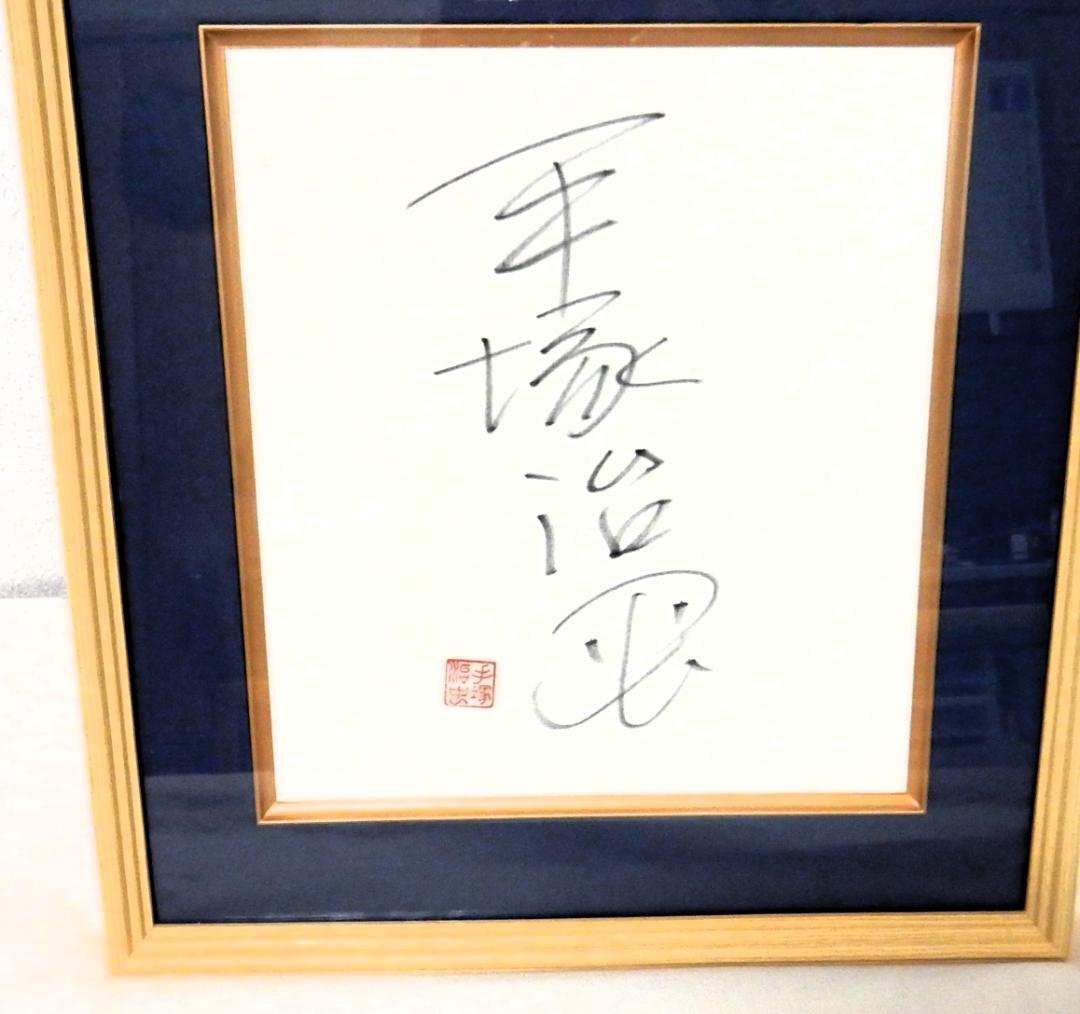 手塚治虫
手塚
治虫